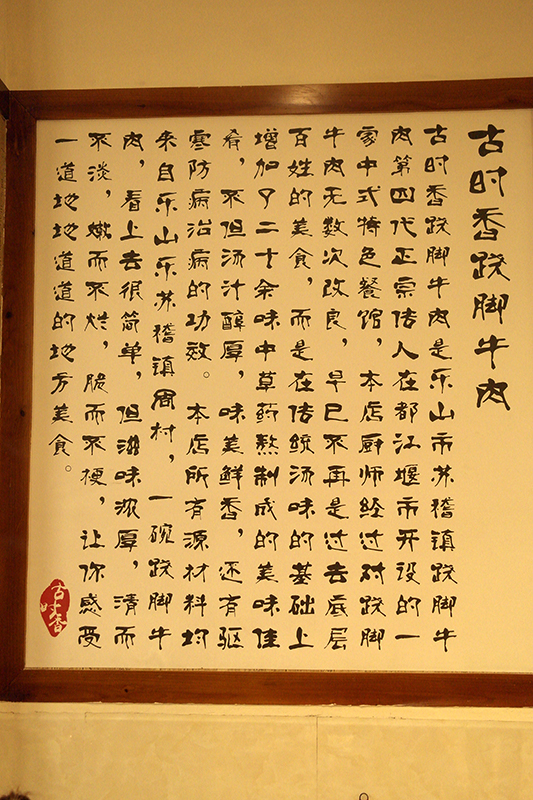 古时香跷脚牛肉
古时香跷脚牛肉是乐山市苏稽镇跷脚牛
肉第四代正宗传人在都江堰市开设的一
家中式特色餐馆，本店厨师经过对跷脚
牛肉无数次改良，早已不再是过去底层
百姓的美食，而是在传统汤味的基础上
增加了二十余味中草药熬制成的美味佳
肴，不但汤汁醇厚，味美鲜香，还有驱
寒防病治病的功效。本店所有源材料均
来自乐山乐苏稽镇周村，一碗跷脚牛
肉，看上去很简单，但滋味浓厚，清而
不淡，嫩而不烂，脆而不梗，让你感受
一道地地道道的地方美食。
古时香